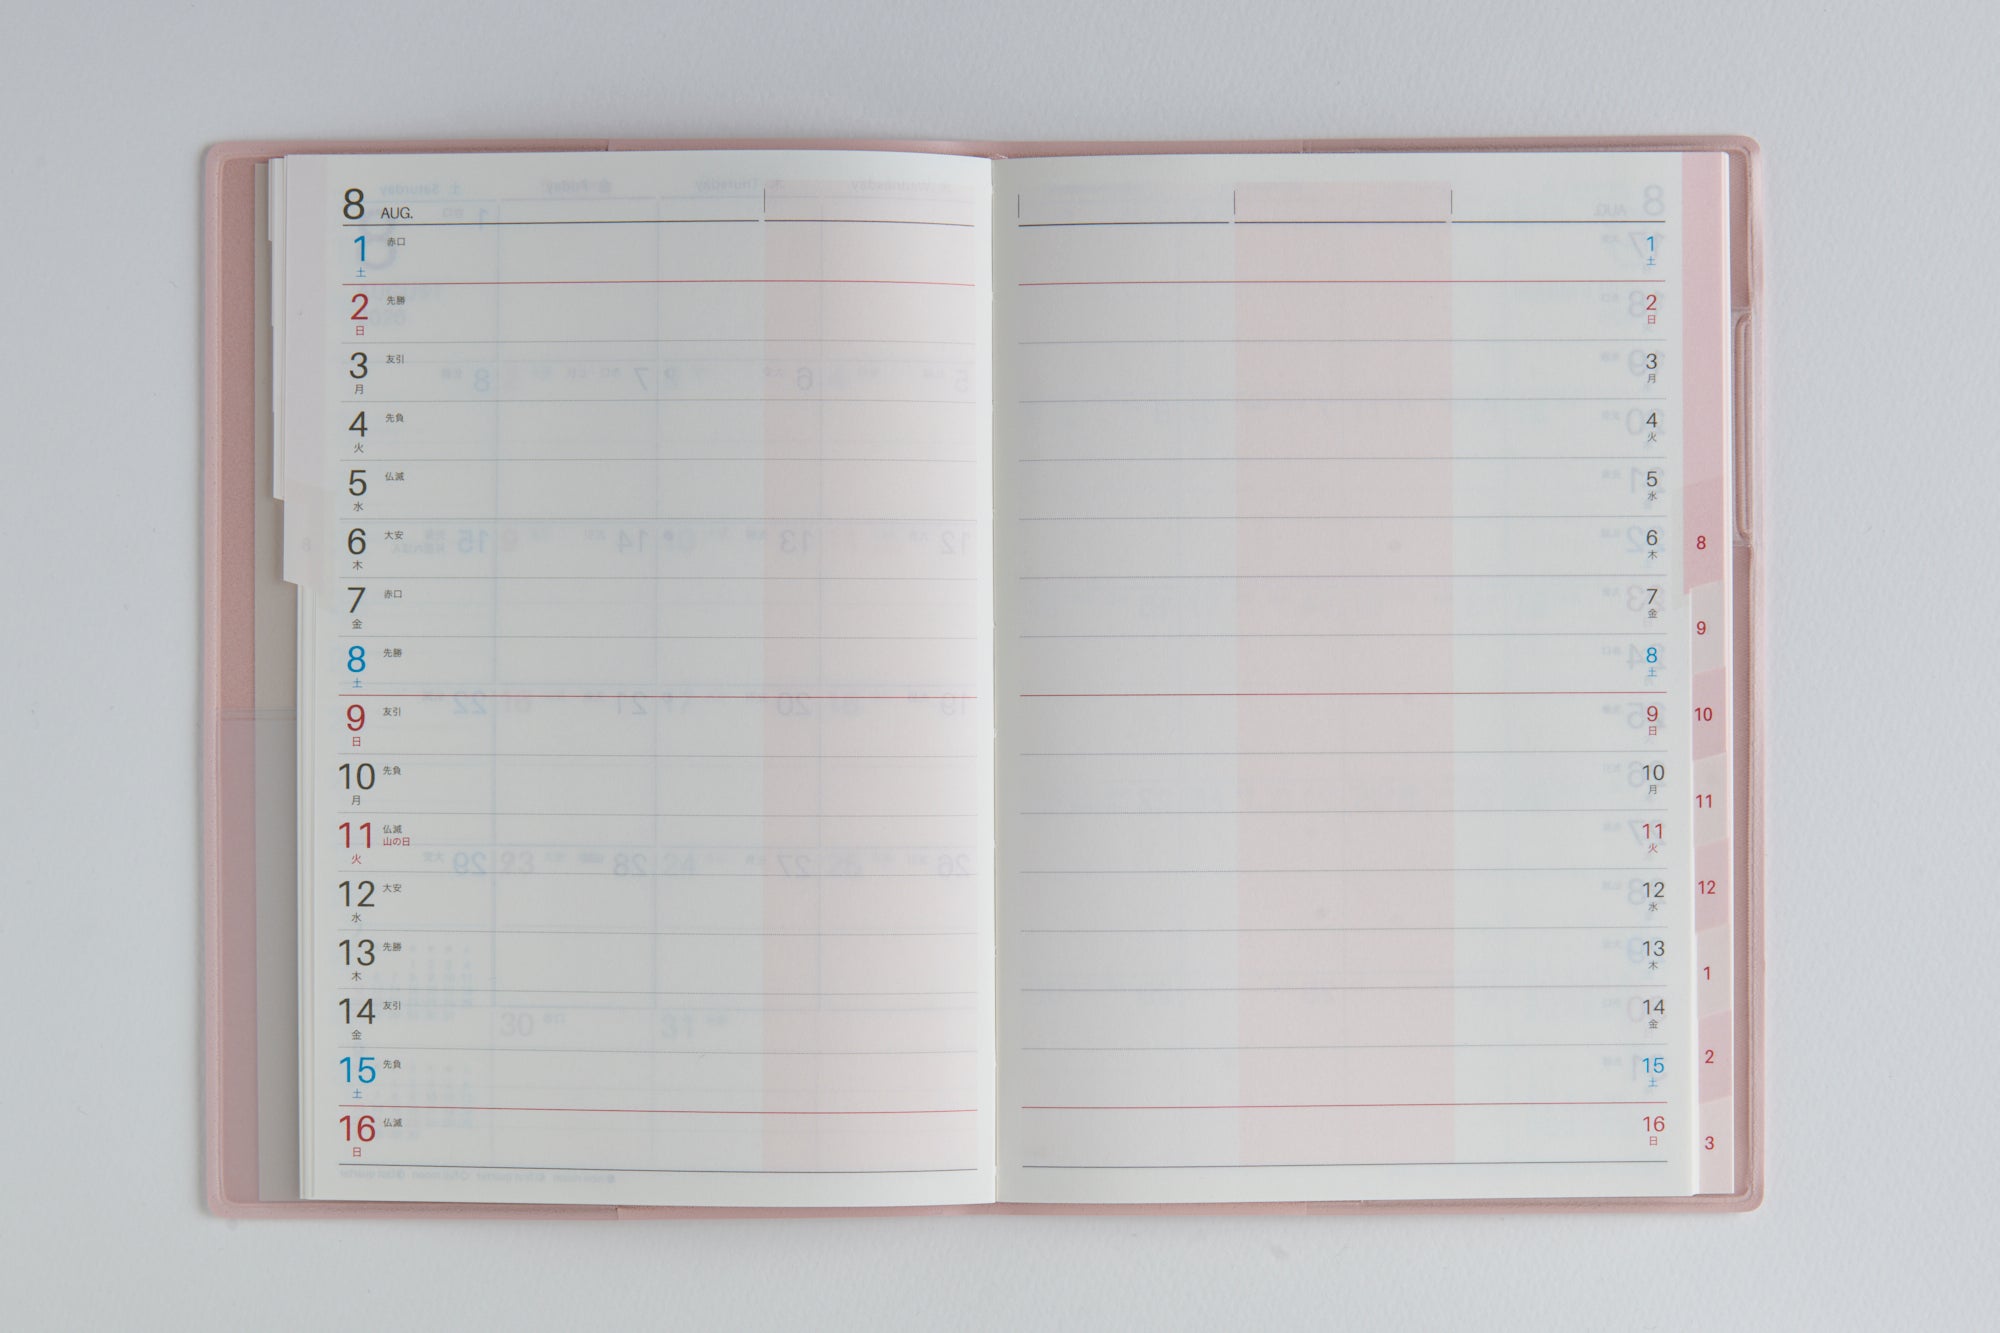 8 AUG.
1 赤口
土
2 先勝
日
3 友引
月
4 先負
火
5 仏滅
水
6 大安
木
7 赤口
金
8 先勝
土
9 友引
日
10 先負
月
11 仏滅
火 山の日
12 大安
水
13 先勝
木
14 友引
金
15 先負
土
16 仏滅
日
1
土
2
日
3
月
4
火
5
水
6
木
7
金
8
土
9
日
10
月
11
火
12
水
13
木
14
金
15
土
16
日
8
9
10
11
12
1
2
3